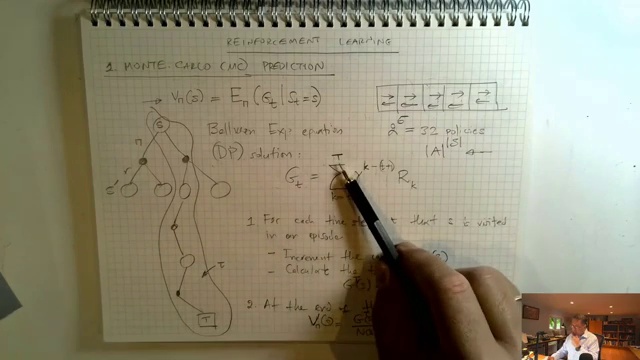 REINFORCEMENT LEARNING
1. MONTE-CARLO (MC) PREDICTION
Vπ(s) = Eπ(Gt | St = s)
Bellman Exp. equation
(DP) solution:
2^5 = 32 policies
|A|^|S|
Gt = T γ^k-(t+1) Rk
S
π
s' r
τ
T
1 For each time step t that s is visited
in an episode
- Increment the
- Calculate the
2 At the end of the
Vπ(s) =